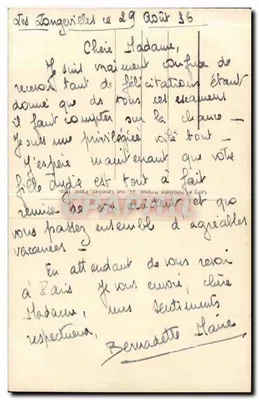 Les Longevilles ce 29 Août 36
Chère Madame,
Je suis vraiment confuse de
recevoir tant de félicitations étant
donné que ds tous ces examens
il faut compter sur la chance –
Je suis une privilégiée voilà tout –
J'espère maintenant que votre
fille Lydie est tout à fait
remise de son accident et que
vous passez ensemble d'agréables
vacances –
En attendant de vous revoir
à Paris je vous envoie, chère
Madame, mes sentiments
respectueux,
Bernadette Maire